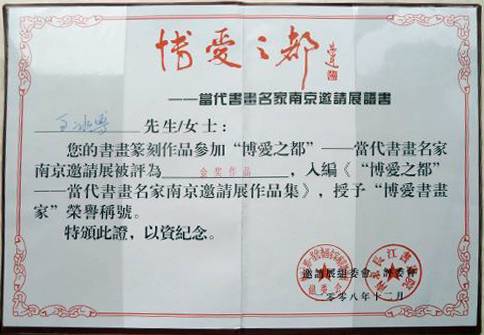 博愛之都
——當代書畫名家南京邀請展證書
王冰 先生/女士：
您的書畫篆刻作品參加“博愛之都”——當代書畫名家
南京邀請展被評為 金奖作品 ，入編《“博愛之都”
——當代書畫名家南京邀請展作品集》，授予“博愛書畫
家”榮譽稱號。
特頒此證，以資紀念。
邀請展組委會、評委會
二零零八年十二月
組委會